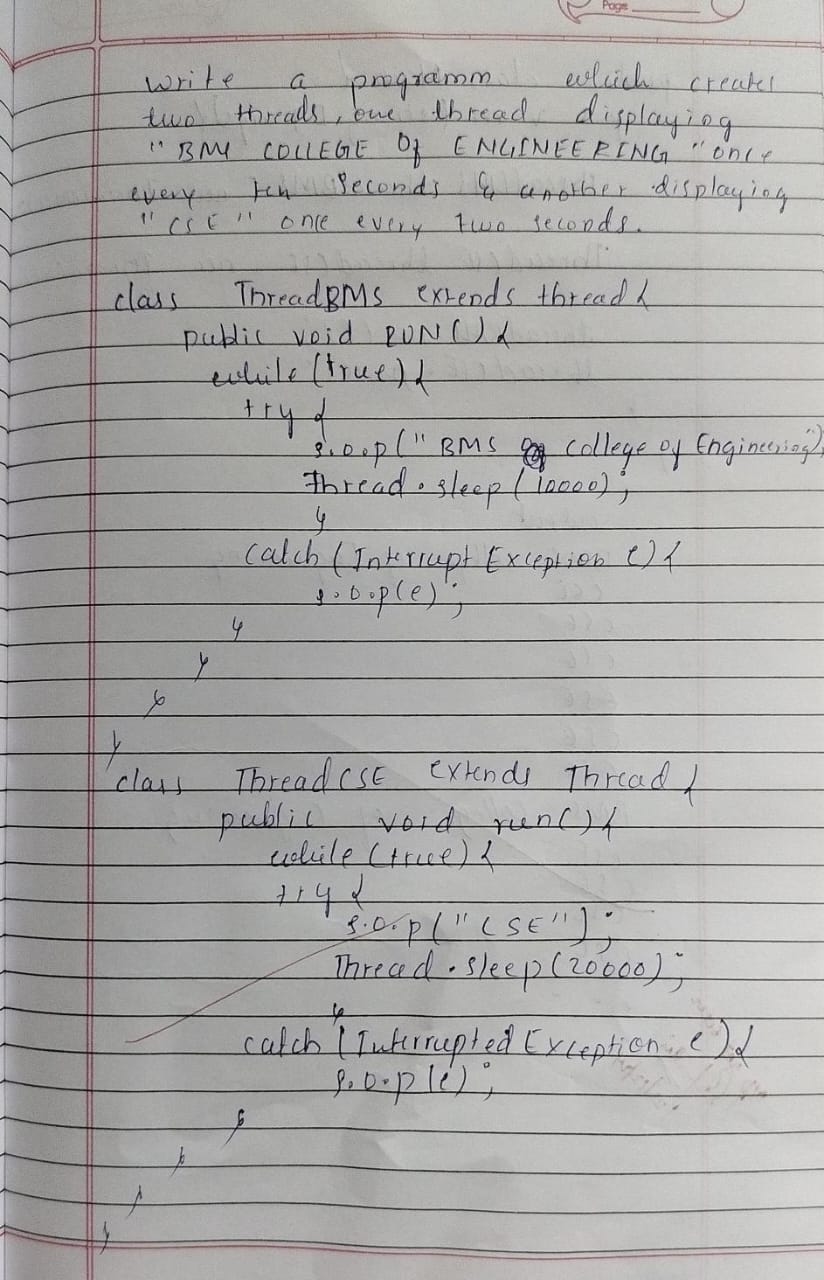 Page
write a programm which creates
two threads, one thread displaying
"BMS COLLEGE Of ENGINEERING" once
every ten seconds & another displaying
"CSE" once every two seconds.
class ThreadBMS extends thread {
public void RUN() {
while (true) {
try {
S.o.p("BMS College of Engineering");
Thread.sleep(10000);
}
catch (Interrupt Exception e) {
S.o.p(e);
}
}
}
}
class ThreadCSE extends Thread {
public void run() {
while (true) {
try {
S.o.p("CSE");
Thread.sleep(20000);
}
catch (Interrupted Exception e) {
S.o.p(e);
}
}
}
}